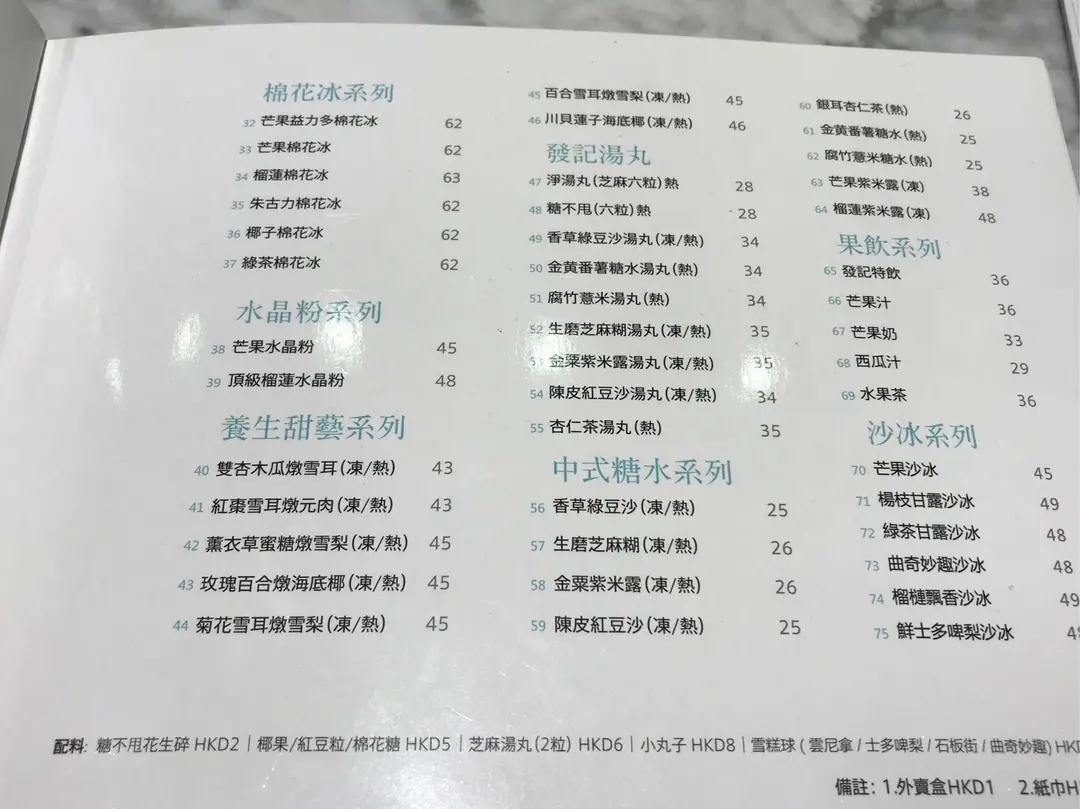 棉花冰系列
32 芒果益力多棉花冰 62
33 芒果棉花冰 62
34 榴蓮棉花冰 63
35 朱古力棉花冰 62
36 椰子棉花冰 62
37 綠茶棉花冰 62
水晶粉系列
38 芒果水晶粉 45
39 頂級榴蓮水晶粉 48
養生甜藝系列
40 雙杏木瓜燉雪耳(凍/熱) 43
41 紅棗雪耳燉元肉(凍/熱) 43
42 薰衣草蜜糖燉雪梨(凍/熱) 45
43 玫瑰百合燉海底椰(凍/熱) 45
44 菊花雪耳燉雪梨(凍/熱) 45
45 百合雪耳燉雪梨(凍/熱) 45
46 川貝蓮子海底椰(凍/熱) 46
發記湯丸
47 淨湯丸(芝麻六粒)熱 28
48 糖不甩(六粒)熱 28
49 香草綠豆沙湯丸(凍/熱) 34
50 金黃番薯糖水湯丸(熱) 34
51 腐竹薏米湯丸(熱) 34
52 生磨芝麻糊湯丸(凍/熱) 35
53 金粟紫米露湯丸(凍/熱) 35
54 陳皮紅豆沙湯丸(凍/熱) 34
55 杏仁茶湯丸(熱) 35
中式糖水系列
56 香草綠豆沙(凍/熱) 25
57 生磨芝麻糊(凍/熱) 26
58 金粟紫米露(凍/熱) 26
59 陳皮紅豆沙(凍/熱) 25
60 銀耳杏仁茶(熱) 26
61 金黃番薯糖水(熱) 25
62 腐竹薏米糖水(熱) 25
63 芒果紫米露(凍) 38
64 榴蓮紫米露(凍) 48
果飲系列
65 發記特飲 36
66 芒果汁 36
67 芒果奶 33
68 西瓜汁 29
69 水果茶 36
沙冰系列
70 芒果沙冰 45
71 楊枝甘露沙冰 49
72 綠茶甘露沙冰 48
73 曲奇妙趣沙冰 48
74 榴槤飄香沙冰 49
75 鮮士多啤梨沙冰
配料: 糖不甩花生碎 HKD2 | 椰果/紅豆粒/棉花糖 HKD5 | 芝麻湯丸(2粒) HKD6 | 小丸子 HKD8 | 雪糕球 (雲尼拿/士多啤梨/石板街/曲奇妙趣)
備註: 1.外賣盒HKD1 2.紙巾